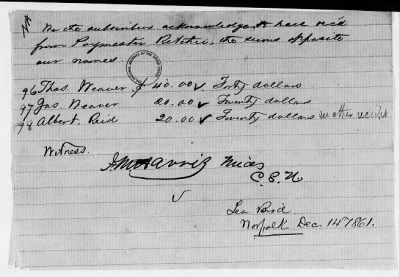 We the subscribers acknowledge to have rec'd
from Paymaster Ritchie, the sums opposite
our names.
96 Thos. Weaver $ 40.00 ✓ Forty dollars
97 Jas. Weaver 20.00 ✓ Twenty dollars
98 Albert Reid 20.00 ✓ Twenty dollars in other receipt
Witness.
C.S.N
Norfolk Dec. 14 1861.